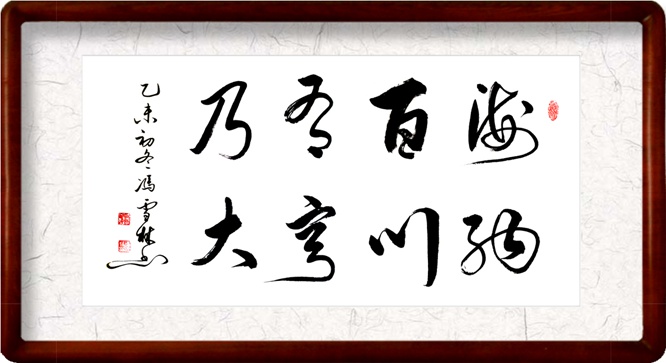 海纳
百川
有容
乃大
乙未初冬冯雪林书